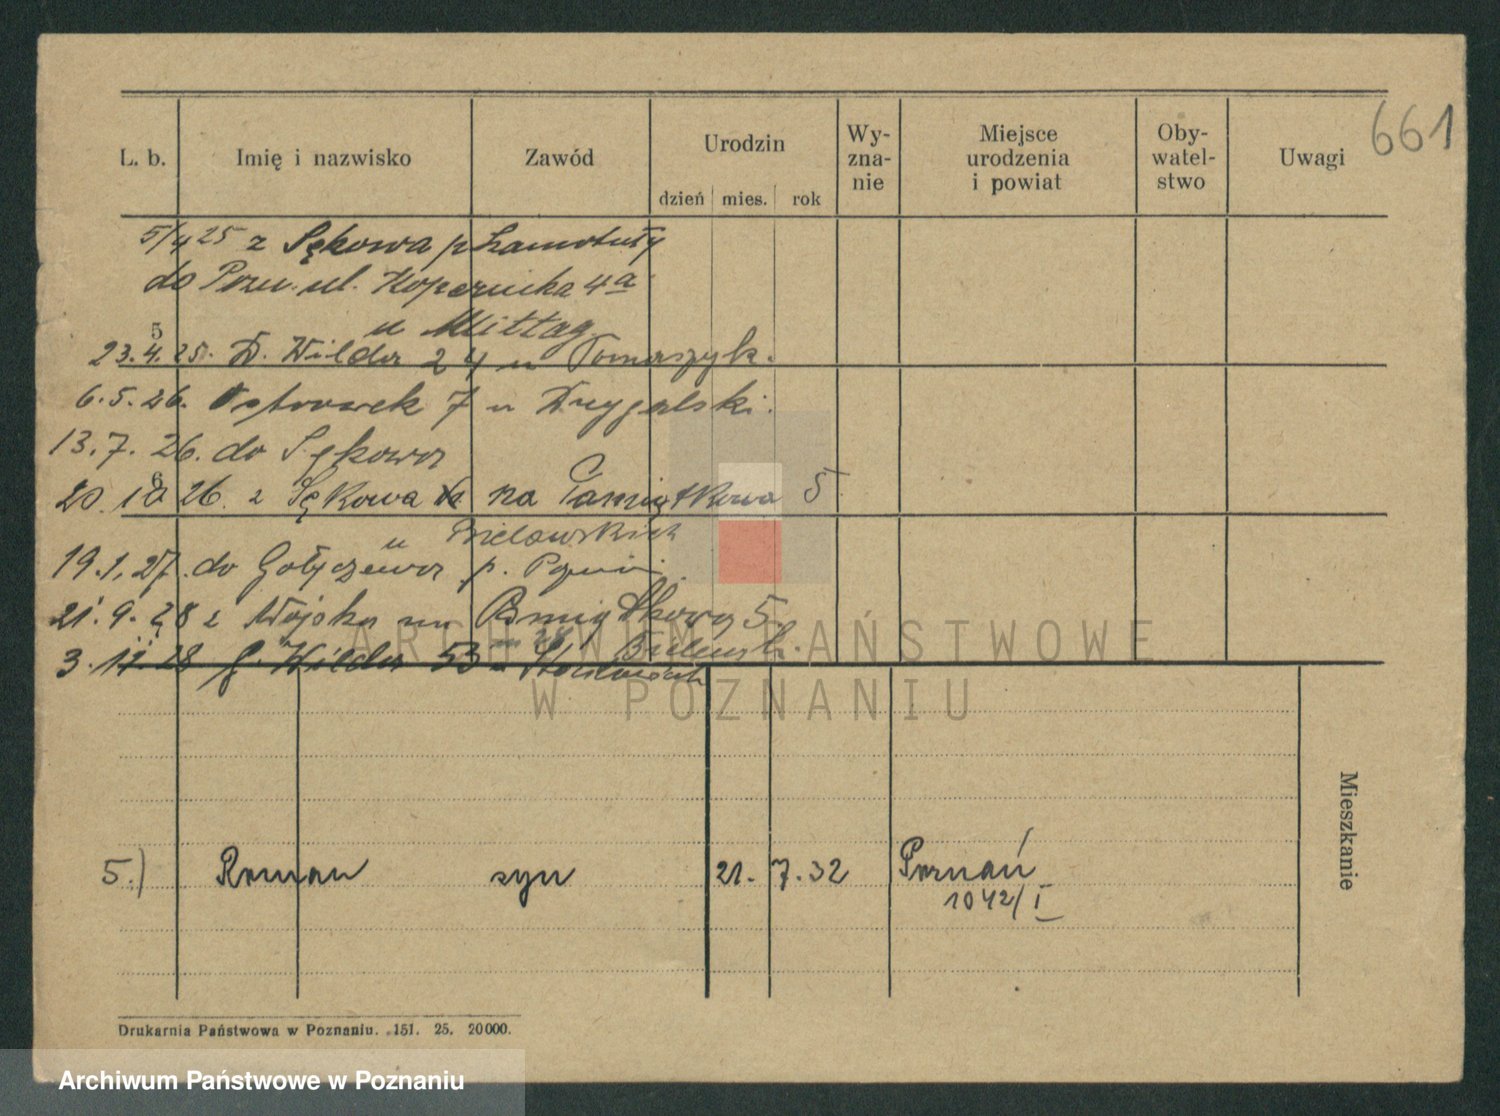 661
L. b. Imię i nazwisko Zawód Urodzin dzień mies. rok Wy- zna- nie Miejsce urodzenia i powiat Oby- watel- stwo Uwagi
5/4 25 z Sękowa p Szamotuły
do Pozn. ul. Kopernika 4a
u Mittag
23.4.25. D. Wilda 24 u Tomaszyk.
5
6.5.26. Ostrówek 7 u Drygalski.
13.7.26. do Sękowa
20.10 26. z Sękowa na Pamiątkowa 5
6
u Bielawskich
19.1.27. do Gołęczewa p. Pozn
21.9.28 z Wojska na Pamiątkową 5.
u Bielawsk.
3.11.28 G. Wilda 53
ARCHIWUM PAŃSTWOWE
W POZNANIU
Mieszkanie
5.) Roman syn 21. 7. 32 Poznań
1042/I
Drukarnia Państwowa w Poznaniu. 151. 25. 20000.
Archiwum Państwowe w Poznaniu